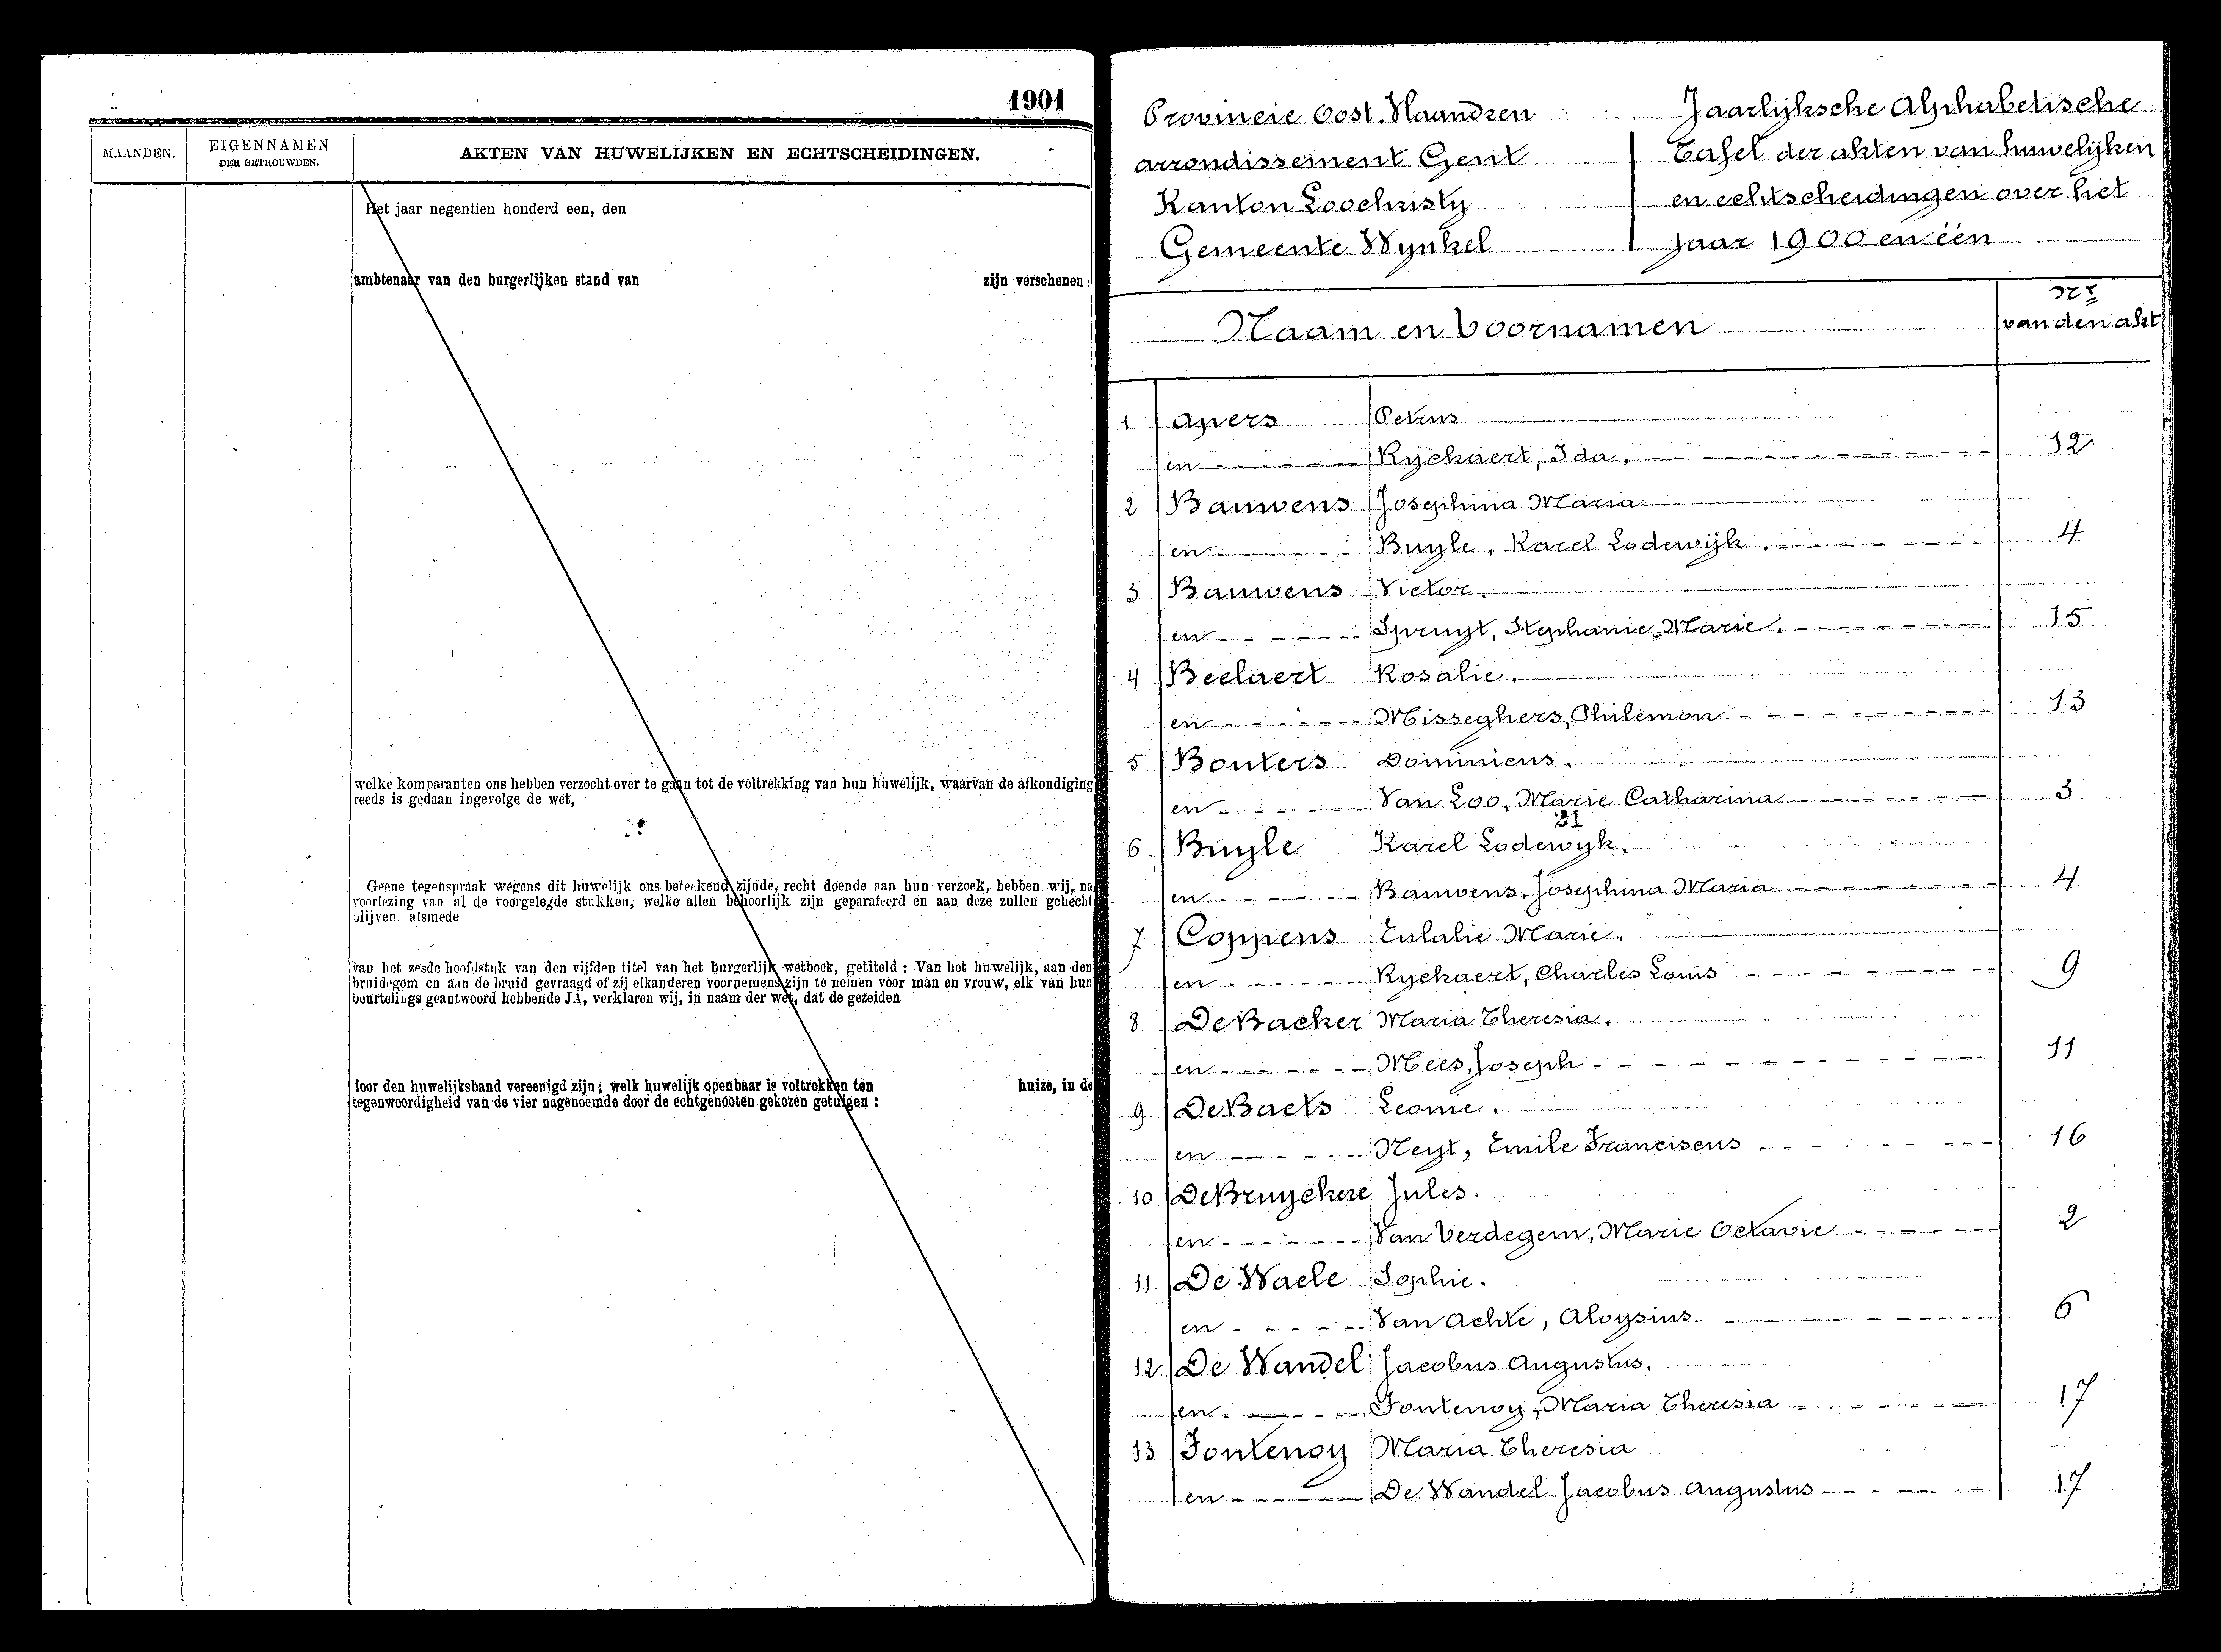 1901
MAANDEN.
EIGENNAMEN
DER GETROUWDEN.
AKTEN VAN HUWELIJKEN EN ECHTSCHEIDINGEN.
Het jaar negentien honderd een, den
ambtenaar van den burgerlijken stand van zijn verschenen:
welke komparanten ons hebben verzocht over te gaan tot de voltrekking van hun huwelijk, waarvan de afkondiging
reeds is gedaan ingevolge de wet,
Geene tegenspraak wegens dit huwelijk ons beteekend zijnde, recht doende aan hun verzoek, hebben wij, na
voorlezing van al de voorgelegde stukken, welke allen behoorlijk zijn geparafeerd en aan deze zullen gehecht
blijven. alsmede
van het zesde hoofdstuk van den vijfden titel van het burgerlijk wetboek, getiteld : Van het huwelijk, aan den
bruidegom en aan de bruid gevraagd of zij elkanderen voornemens zijn te nemen voor man en vrouw, elk van hun
beurtelings geantwoord hebbende JA, verklaren wij, in naam der wet, dat de gezeiden
door den huwelijksband vereenigd zijn; welk huwelijk openbaar is voltrokken ten huize, in de
tegenwoordigheid van de vier nagenoemde door de echtgenooten gekozen getuigen :
Provincie Oost. Vlaandren
arrondissement Gent
Kanton Loochristy
Gemeente Wynkel
Jaarlijksche Alphabetische
Tafel der akten van huwelijken
en echtscheidingen over het
jaar 1900 en één
Naam en Voornamen
van den akt
1 Apers Petrus
en Ryckaert, Ida. 12
2 Bauwens Josephina Maria
en Buyle, Karel Lodewijk. 4
3 Bauwens Victor.
en Spruyt, Stephanie Marie. 15
4 Beelaert Rosalie.
en Misseghers, Philemon 13
5 Bouters Dominicus.
en Van Loo, Marie Catharina 3
21
6 Buyle Karel Lodewyk.
en Bauwens, Josephina Maria 4
7 Coppens Eulalie Marie.
en Ryckaert, Charles Louis 9
8 De Backer Maria Theresia.
en Mees, Joseph 11
9 De Baets Leonie.
en Neyt, Emile Franciscus 16
10 De Bruyckere Jules.
en Van Verdegem, Marie Octavie 2
11 De Waele Sophie.
en Van Achte, Aloysius 6
12 De Wandel Jacobus Augustus.
en Fontenoy, Maria Theresia 17
13 Fontenoy Maria Theresia
en De Wandel Jacobus Augustus 17